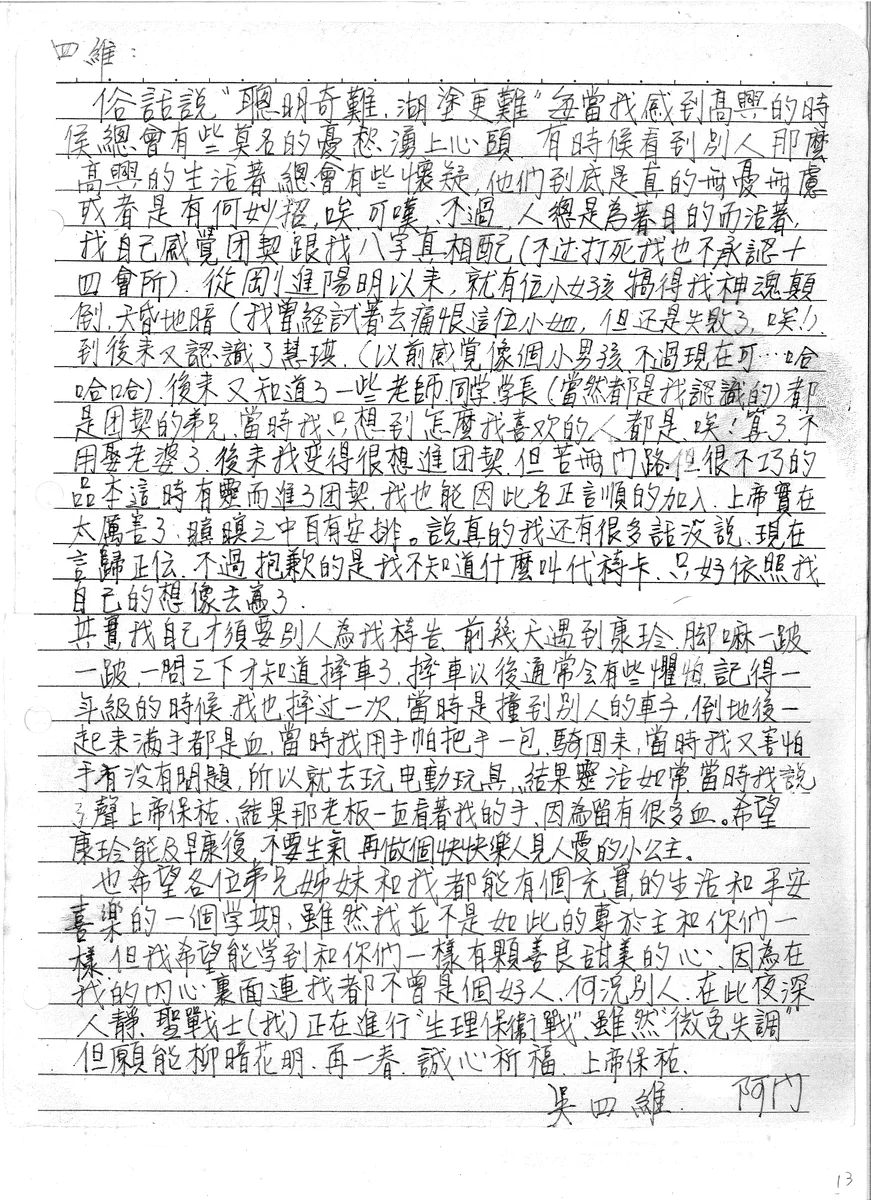 四維：
俗話說"聰明奇難、湖塗更難"每當我感到高興的時
侯總會有些莫名的憂愁湧上心頤．有時候看到別人那麼
高興的生活著總會有些懷疑，他們到底是真的無憂無慮
或者是有何妙招，唉．可嘆．不過．人總是為著目的而活著，
我自己感覺团契跟我八字真相配(不过打死我也不承認十
四會所)．從剛進陽明以來，就有位小女孩犒得我神魂顛
倒．天昏地暗(我曾経試著去痛恨這位小，但还是失敗了．唉!)．
到後來又認識了慧琪．(以前感覚像個小男孩．不過現在可…哈
哈哈)．後來又知道了一些老師．同学学長(當然都是我認識的)都
是团契的弟兄．當時我只想到怎麼我喜欢的人都是．唉！算了．不
用娶老婆了．後來我变得很想進团契．但苦無門路．但很不巧的
品本這時有靈而進了团契．我也能因此名正言順的加入．上帝實在
太厲害了．瞋瞋之中自有安排。說真的我还有很多話没說．現在
言歸正伝．不過抱歉的是我不知道什麼叫代禱卡．只好依照我
自己的想像去寫了．
其實我自己才須要別人為我禱告．前幾天遇到康玲．脚嘛一跛
一跛．一問之下才知道摔車了．摔車以後通常会有些懼怕．記得一
年級的時候．我也摔过一次．當時是撞到別人的車子，倒地後一
起來满手都是血．當時我用手帕把手一包．騎回來．當時我又害怕
手有没有問題，所以就去玩电動玩具．結果靈活如常．當時我說
了聲上帝保祐．結果那老板一直看著我的手．因為留有很多血。希望
康玲能及早康復．不要生氣．再做個快快樂人見人愛的小公主。
也希望各位弟兄姊妹和我都能有個充實的生活和平安
喜樂的一個学期．雖然我並不是如此的專於主和你們一
樣．但我希望能学到和你們一樣有顆善良甜美的心．因為在
我的内心裏面連我都不曾是個好人．何況別人．在此夜深
人靜．聖戰士(我)正在進行"生理保衛戰"．雖然"微免失調"
但願能柳暗花明．再一春．誠心祈福．上帝保祐．
吳四維． 阿门
13